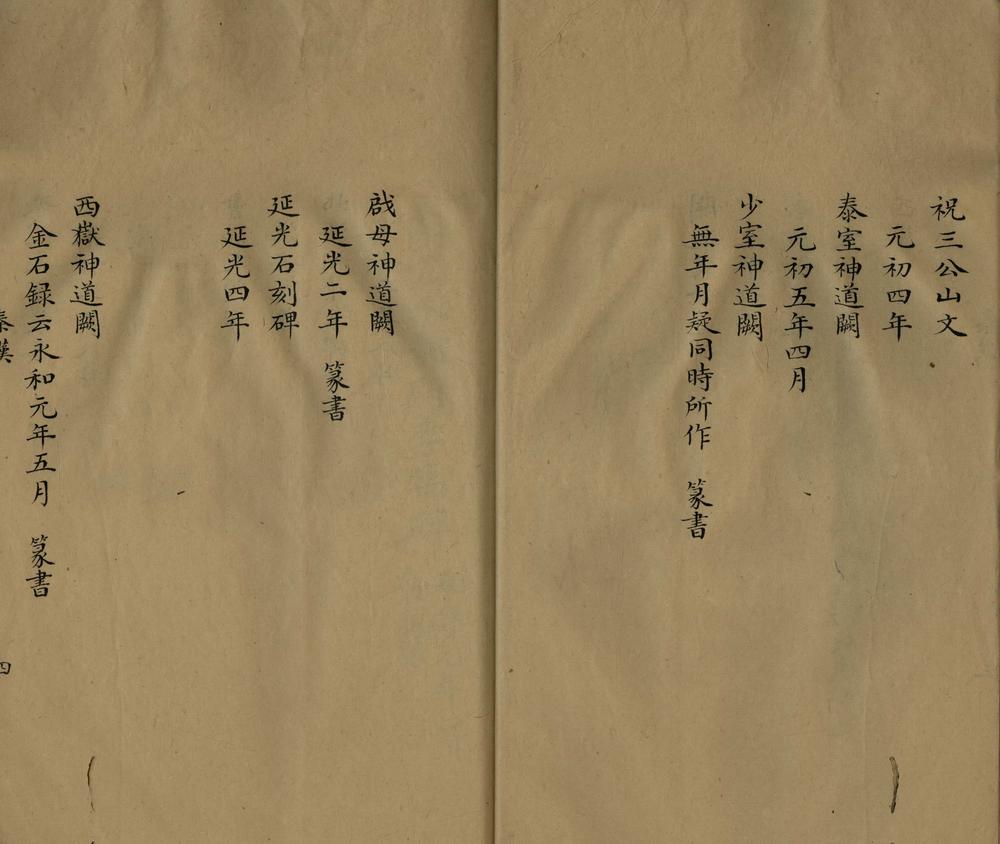 祝三公山文
元初四年
泰室神道闕
元初五年四月
少室神道闕
無年月疑同時所作　篆書
啟母神道闕
延光二年　篆書
延光石刻碑
延光四年
西嶽神道闕
金石録云永和元年五月　篆書
秦漢　四